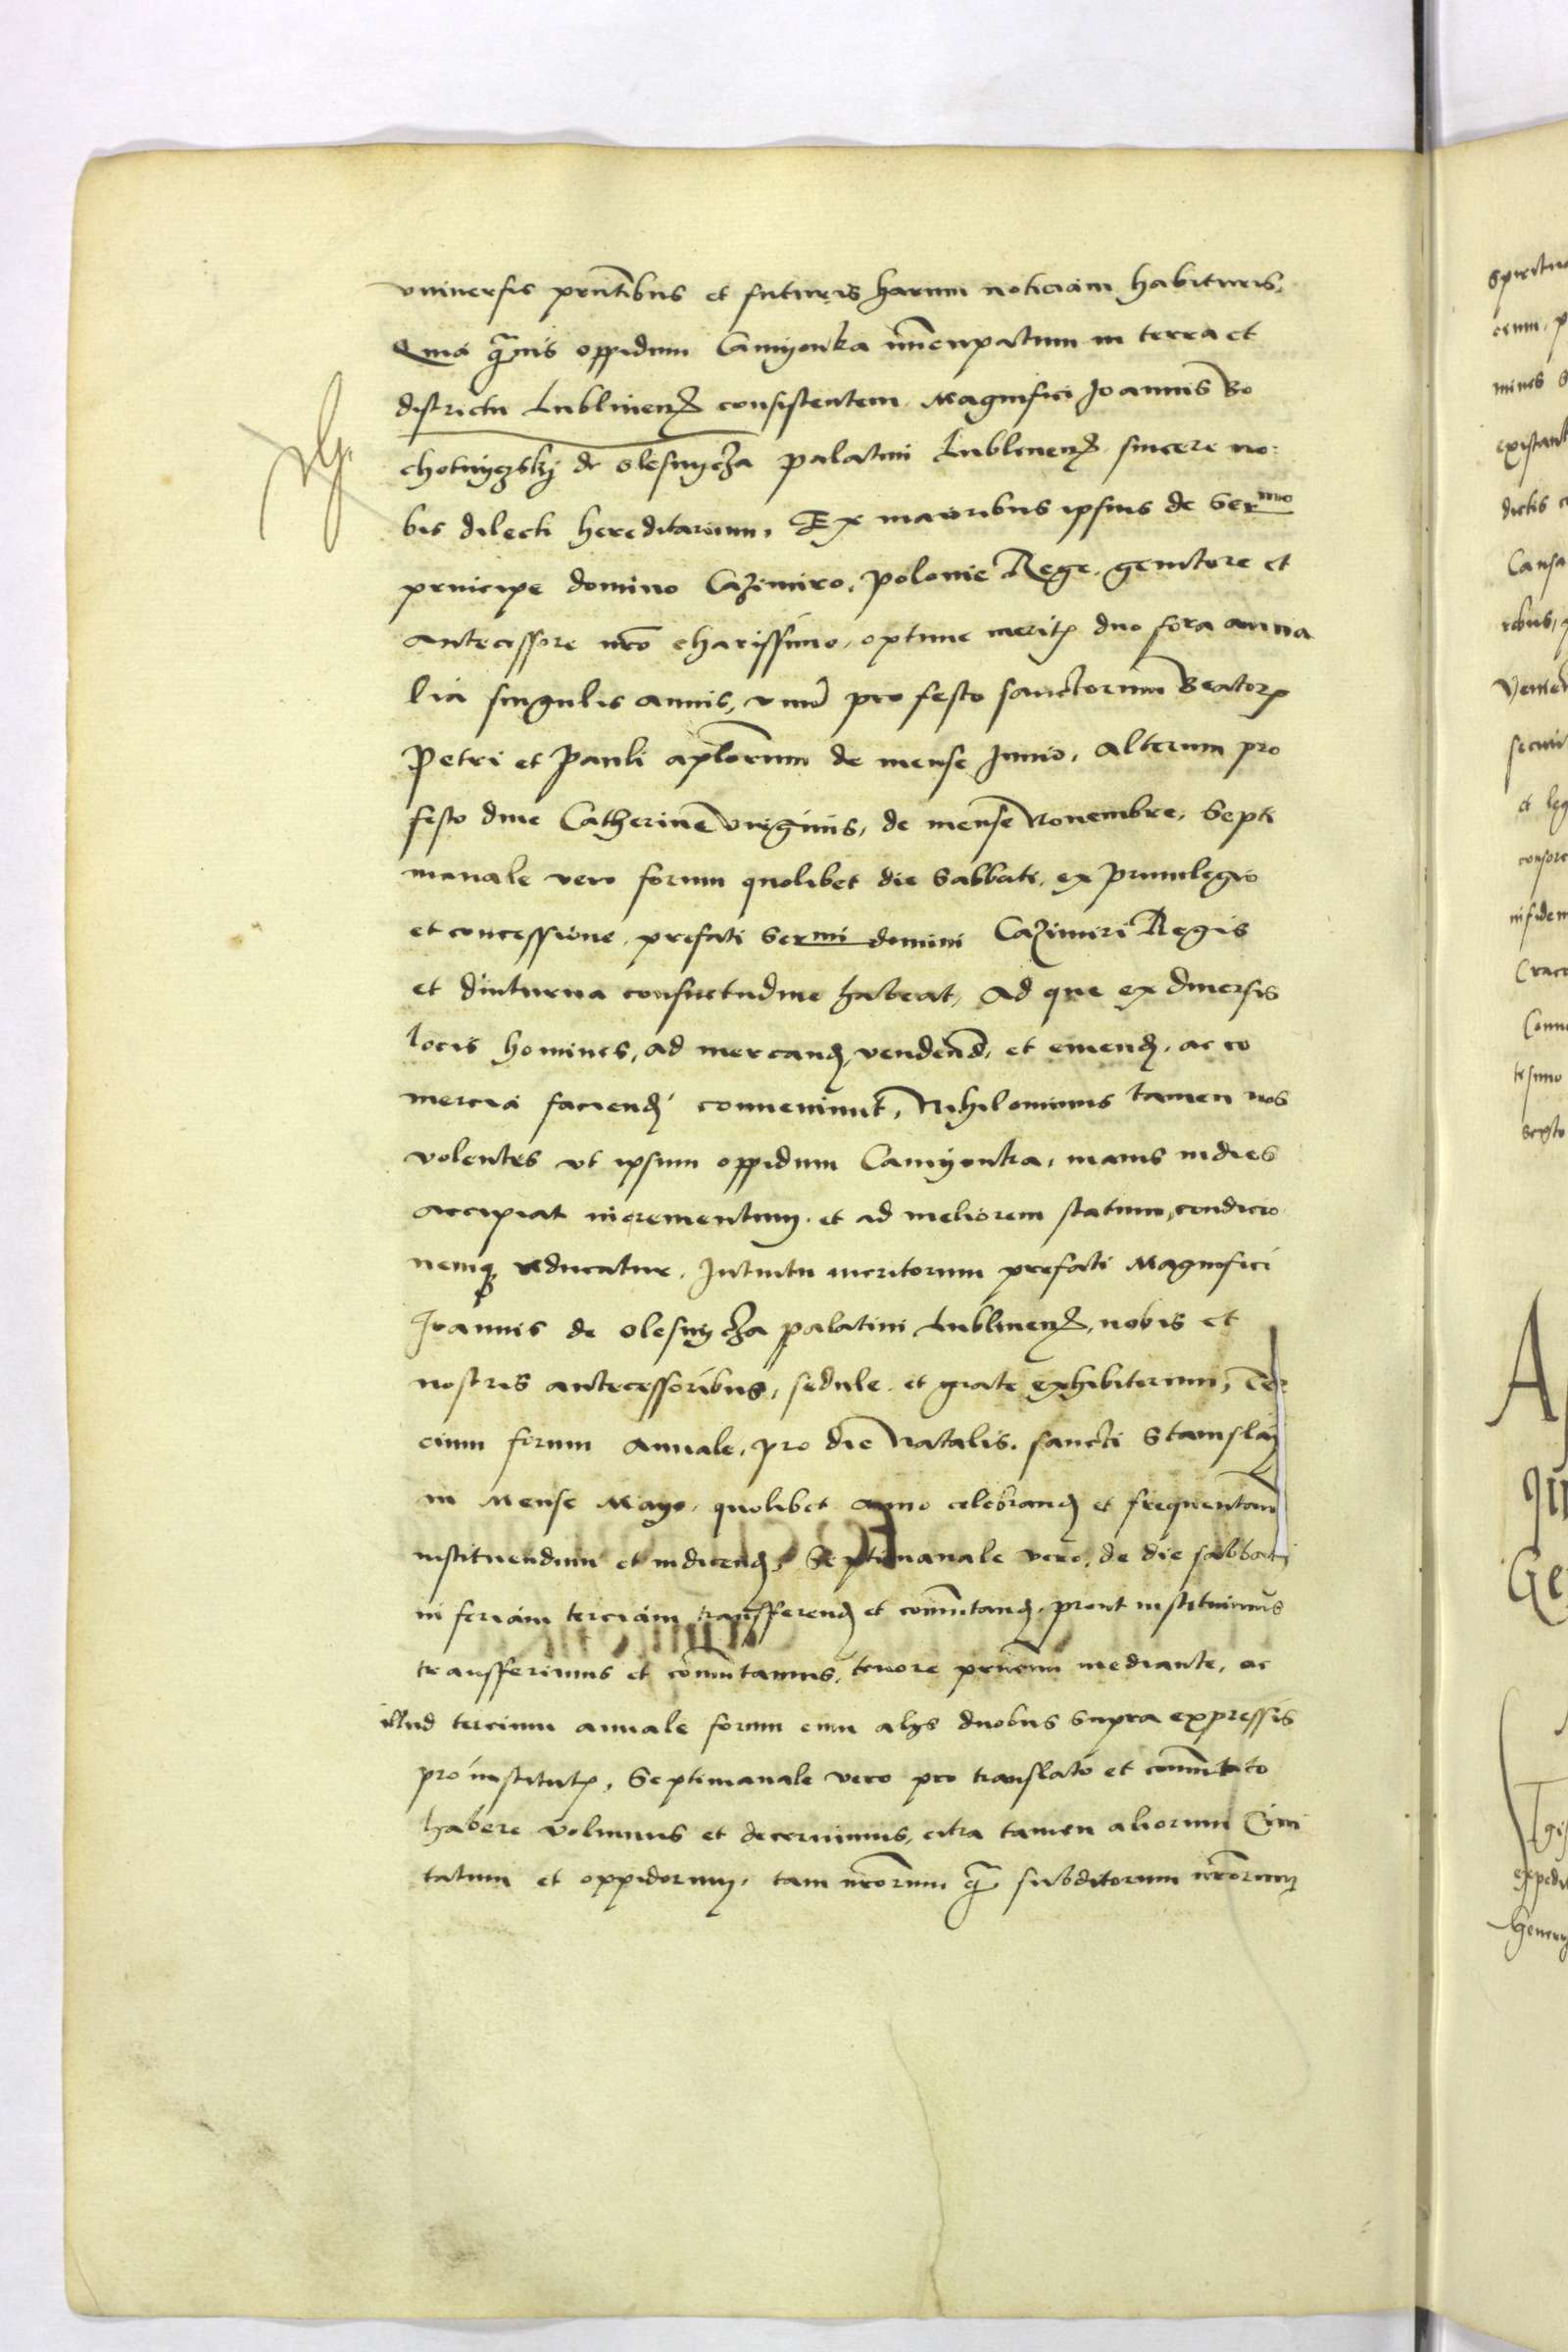 vniuersis pn̄tibus et futuris harum noticiam habituris,
Quia q̄uis oppidum Camyonka nūncupatum in terra et
districtu Lublinenß consistentem Magnifici Joannis Bo
chotnyczskÿ de Olesnycza palatini Lublinenß sincere no:
bis dilecti hereditarium, Ex maioribus ipsius de Sermo
principe domino Cazimiro, polonie Rege, genitore et
antecessore nr̄o charissimo, optime meritꝭ duo fora annua
lia singulis annis, vnū pro festo sanctorum Beatorꝭ
Petri et Pauli apl̄orum de mense Junio, alterum pro
festo diue Catherine virginis, de mense Nouembre, Septi
manale vero forum quolibet die Sabbati, ex priuilegio
et concessione prefati Sermi domini Cazimiri Regis
et diuturna consuetudine habeat, ad que ex diuersis
locis homines, ad mercand, vendend, et emend, ac co
mercia faciend conueniunt, Nihilominus tamen nos
volentes vt ipsum oppidum Camyonka, maius indies
accipiat incrementum, et ad meliorem statum, condicio
nemq̨ reducatur, Intuitu meritorum prefati Magnifici
Joannis de Olesnycza palatini Lublinenß, nobis et
nostris antecessoribus, sedule et grate exhibitorum, Ter
cium forum annuale, pro die Natalis sancti Stanislai
in Mense Mayo, quolibet anno celebrand et frequentand
instituendum et indicend, Septimanale vero, de die sabbati
in feriam terciam transfferend et comutand, prout instituimus
transfferimus et cōmutamus, tenore pn̄cium mediante, ac
illud tercium annuale forum cum alijs duobus supra expressis
pro institutꝭ, Septimanale vero pro translato et comutato
habere volumus et decernimus, citra tamen aliorum Ciui
tatum et oppidorum, tam nr̄orum q̄ subditorum nr̄orum